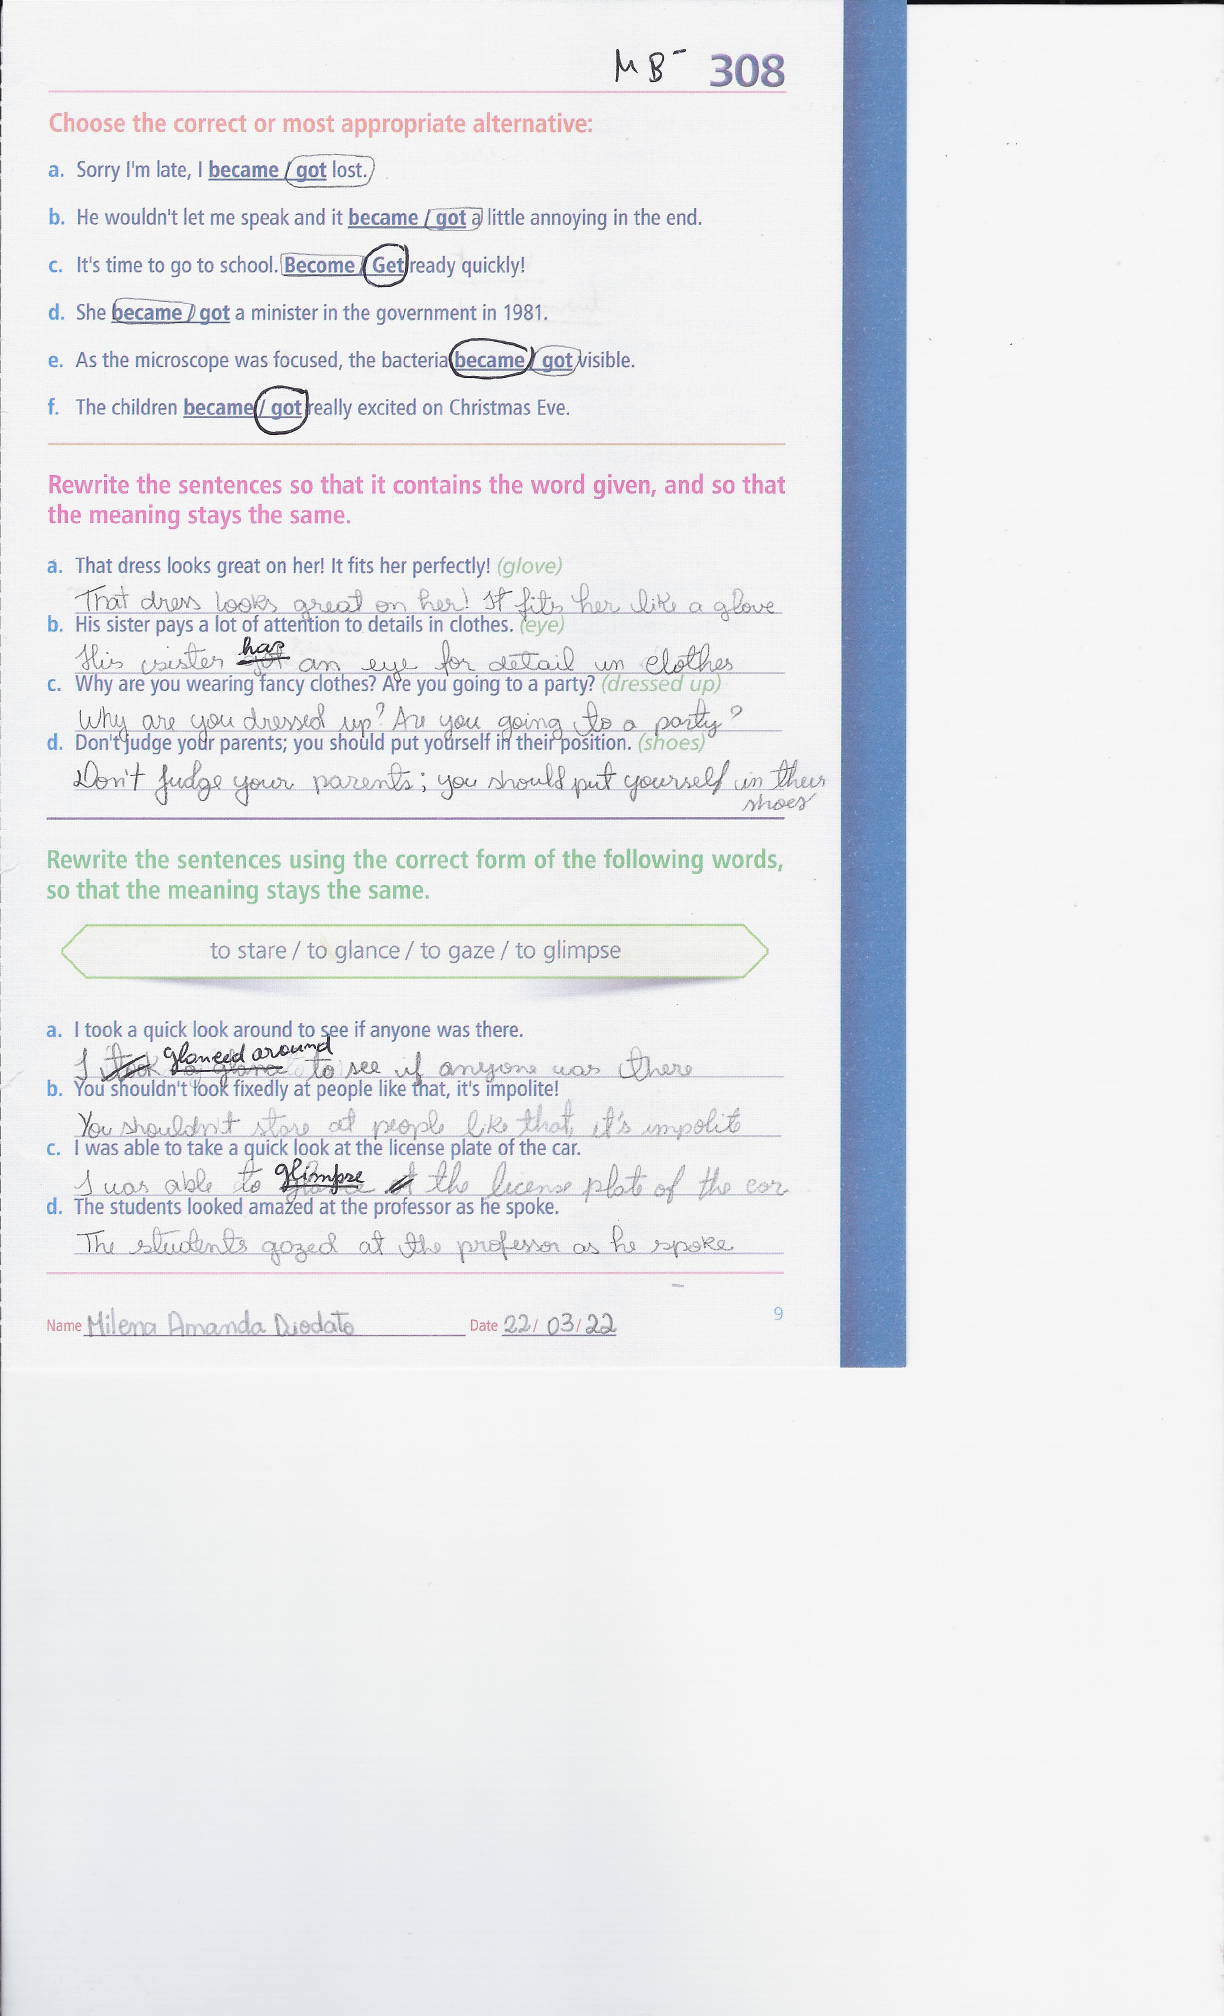 MB- 308
Choose the correct or most appropriate alternative:
a. Sorry I'm late, I became / got lost.
b. He wouldn't let me speak and it became / got a little annoying in the end.
c. It's time to go to school. Become / Get ready quickly!
d. She became / got a minister in the government in 1981.
e. As the microscope was focused, the bacteria became / got visible.
f. The children became / got really excited on Christmas Eve.
Rewrite the sentences so that it contains the word given, and so that
the meaning stays the same.
a. That dress looks great on her! It fits her perfectly! (glove)
That dress looks great on her! It fits her like a glove
b. His sister pays a lot of attention to details in clothes. (eye)
has
His sister got an eye for detail in clothes
c. Why are you wearing fancy clothes? Are you going to a party? (dressed up)
Why are you dressed up? Are you going to a party?
d. Don't judge your parents; you should put yourself in their position. (shoes)
Don't judge your parents; you should put yourself in their
shoes
Rewrite the sentences using the correct form of the following words,
so that the meaning stays the same.
to stare / to glance / to gaze / to glimpse
a. I took a quick look around to see if anyone was there.
glanced around
I took a glance to see if anyone was there
b. You shouldn't look fixedly at people like that, it's impolite!
You shouldn't stare at people like that, it's impolit
c. I was able to take a quick look at the license plate of the car.
glimpse
I was able to glance at the license plate of the car
d. The students looked amazed at the professor as he spoke.
The students gazed at the professor as he spoke
Name Milena Amanda Diodato Date 22/ 03/22
9